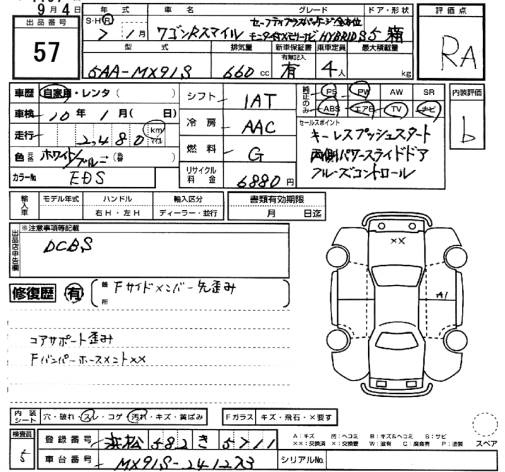 9月4日
出品番号
57
年式 車名 グレード ドア・形状
S・H・R 7年 1月 ワゴンRスマイル HYBRID S 5 箱
型式 排気量 新車保証書 乗車定員 最大積載量
有無記入
5AA-MX91S 660cc 有 4人 kg
評価点
RA
車歴 自家用・レンタ( )
車検 10年 1月( 日)
走行 2,480 km マイル
色 ホワイト/ブルー
カラーNo EDS
シフト IAT
冷房 AAC
燃料 G
リサイクル料金 6880円
純正のみ PS PW AW SR
ABS エアB TV ナビ
セールスポイント
キーレスプッシュスタート
両側パワースライドドア
クルーズコントロール
内装評価
b
輸入車 モデル年式 ハンドル 輸入区分
右H・左H ディーラー・並行
書類有効期限
月 日迄
出品店申告欄
※注意事項等記載
DCBS
修復歴 有 箇所 Fサイドメンバー先歪み
コアサポート歪み
Fバンパーホースメント××
××
A1
内装シート 穴・破れ・スレ・コゲ・汚れ・キズ・黄ばみ
Fガラス キズ・飛石・×要す
検査員
5
登録番号 浜松 582 き 5711
車台番号 MX91S-241223
シリアルNo.
A:キズ H:ヘコミ B:キズ&ヘコミ S:サビ
××:交換済 ×:要交換 W:波有 C:腐食有 P:塗装
スペア